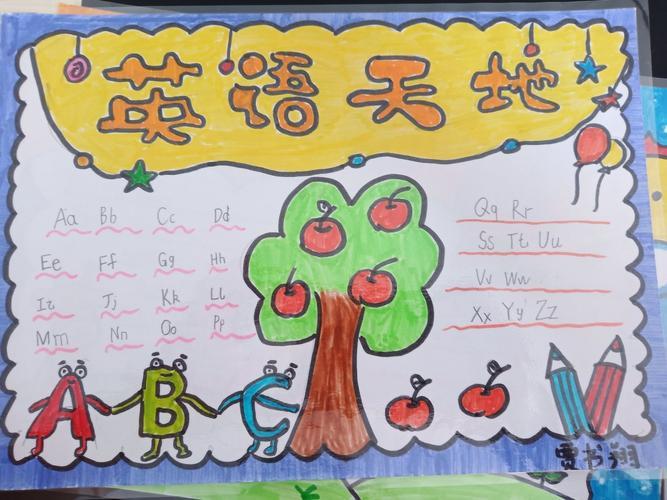 英语天地
Aa Bb Cc Dd
Ee Ff Gg Hh
Ii Jj Kk Ll
Mm Nn Oo Pp
Qq Rr
Ss Tt Uu
Vv Ww
Xx Yy Zz
A B C
贾书翔